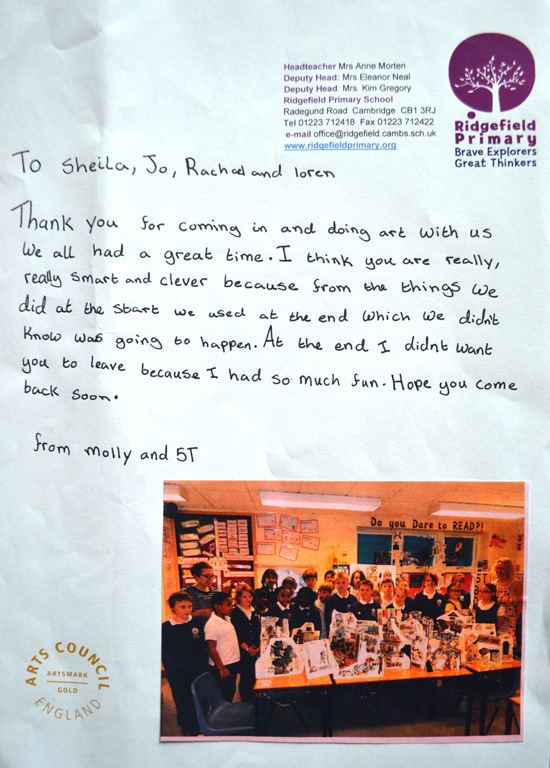 Headteacher Mrs Anne Morten
Deputy Head: Mrs Eleanor Neal
Deputy Head: Mrs. Kim Gregory
Ridgefield Primary School
Radegund Road Cambridge CB1 3RJ
Tel 01223 712418 Fax 01223 712422
e-mail office@ridgefield.cambs.sch.uk
www.ridgefieldprimary.org
Ridgefield
Primary
Brave Explorers
Great Thinkers
To Sheila, Jo, Rachael and loren
Thank you for coming in and doing art with us
We all had a great time. I think you are really,
really smart and clever because from the things we
did at the start we used at the end which we didn't
know was going to happen. At the end I didnt want
you to leave because I had so much fun. Hope you come
back soon.
from molly and 5T
Do you Dare to READ?!
5T
ARTS COUNCIL
ARTSMARK
GOLD
ENGLAND